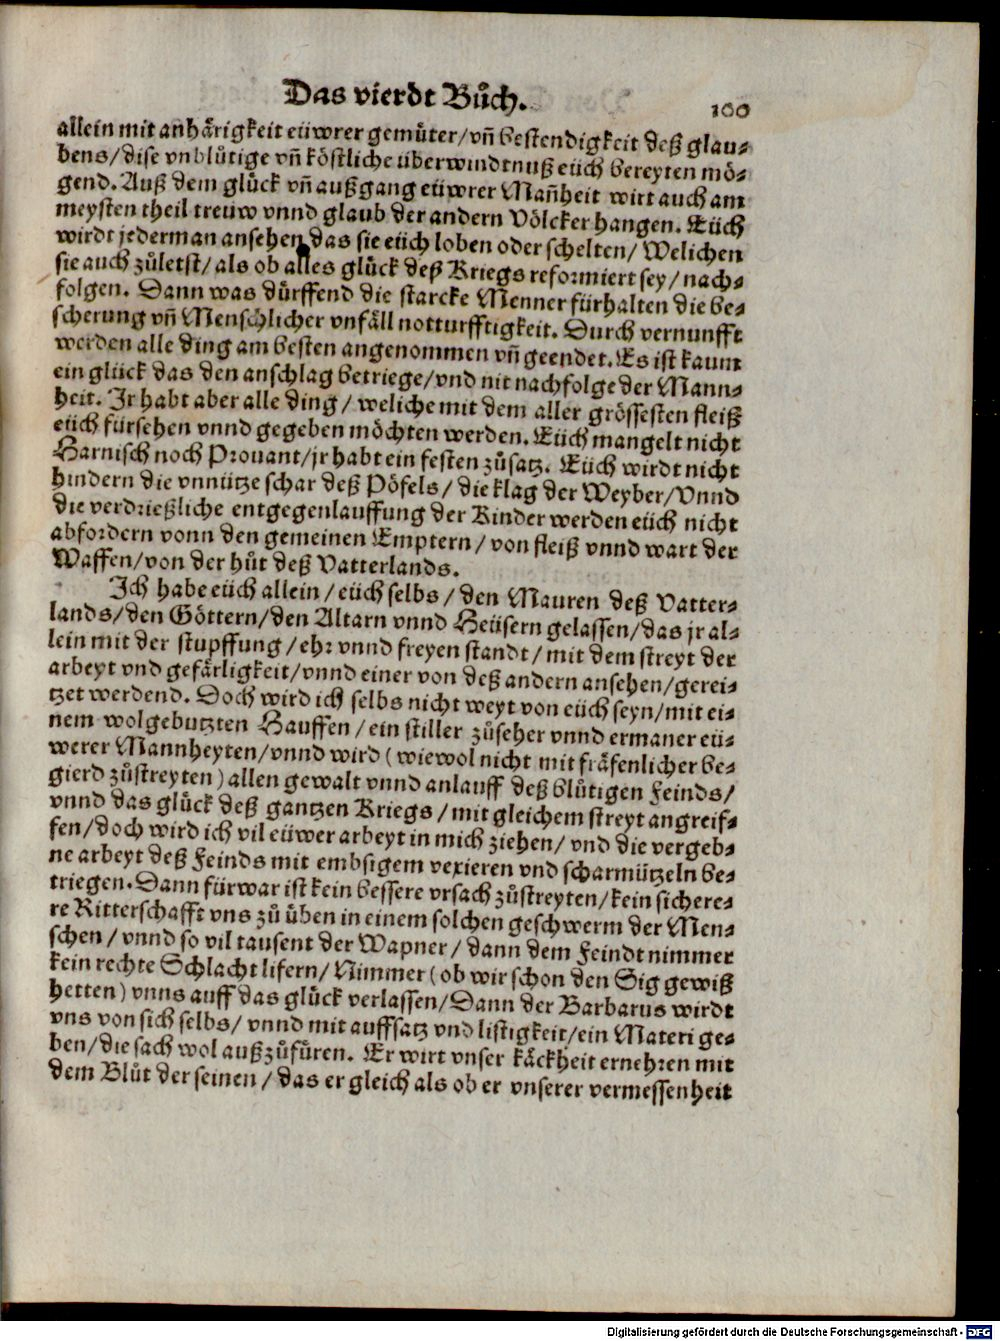 Das vierdt Bůch.
100
allein mit anhärigkeit eüwrer gemüter/ vñ bestendigkeit deß glau⸗
bens/ dise vnblůtige vñ köstliche überwindtnuß eüch bereyten mö⸗
gend. Auß dem glück vñ außgang eüwrer Mañheit wirt auch am
meysten theil treuw vnnd glaub der andern Völcker hangen. Eüch
wirdt jederman ansehen das sie eüch loben oder schelten/ Welichen
sie auch zůletst/ als ob alles glück deß Kriegs reformiert sey/ nach⸗
folgen. Dann was dürffend die starcke Menner fürhalten die be⸗
scherung vñ Menschlicher vnfäll notturfftigkeit. Durch vernunfft
werden alle ding am besten angenommen vñ geendet. Es ist kaum
ein glück das den anschlag betriege/ vnd nit nachfolge der Mann⸗
heit. Ir habt aber alle ding/ weliche mit dem aller grössesten fleiß
eüch fürsehen vnnd gegeben möchten werden. Eüch mangelt nicht
Harnisch noch Prouant/ jr habt ein festen zůsatz. Eüch wirdt nicht
hindern die vnnütze schar deß Pöfels/ die klag der Weyber/ Vnnd
die verdrießliche entgegenlauffung der Kinder werden eüch nicht
abfordern vonn den gemeinen Emptern/ von fleiß vnnd wart der
Waffen/ von der hůt deß Vatterlands.
Ich habe eüch allein/ eüch selbs/ den Mauren deß Vatter⸗
lands/ den Göttern/ den Altarn vnnd Heüsern gelassen/ das jr al⸗
lein mit der stupffung/ ehr vnnd freyen standt/ mit dem streyt der
arbeyt vnd gefärligkeit/ vnnd einer von deß andern ansehen/ gerei⸗
tzet werdend. Doch wird ich selbs nicht weyt von eüch seyn/ mit ei⸗
nem wolgebutzten Hauffen/ ein stiller zůseher vnnd ermaner eü⸗
werer Mannheyten/ vnnd wird (wiewol nicht mit fräfenlicher be⸗
gierd zůstreyten) allen gewalt vnnd anlauff deß blůtigen Feinds/
vnnd das glück deß gantzen Kriegs/ mit gleichem streyt angreif⸗
fen/ doch wird ich vil eüwer arbeyt in mich ziehen/ vnd die vergeb⸗
ne arbeyt deß Feinds mit embsigem vexieren vnd scharmützeln be⸗
triegen. Dann fürwar ist kein bessere vrsach zůstreyten/ kein sichere⸗
re Ritterschafft vns zů üben in einem solchen geschwerm der Men⸗
schen/ vnnd so vil tausent der Wapner/ dann dem Feindt nimmer
kein rechte Schlacht lifern/ Nimmer (ob wir schon den Sig gewiß
hetten) vnns auff das glück verlassen/ Dann der Barbarus wirdt
vns von sich selbs/ vnnd mit auffsatz vnd listigkeit/ ein Materi ge⸗
ben/ die sach wol außzůfüren. Er wirt vnser käckheit ernehren mit
dem Blůt der seinen/ das er gleich als ob er vnserer vermessenheit
Digitalisierung gefördert durch die Deutsche Forschungsgemeinschaft - DFG